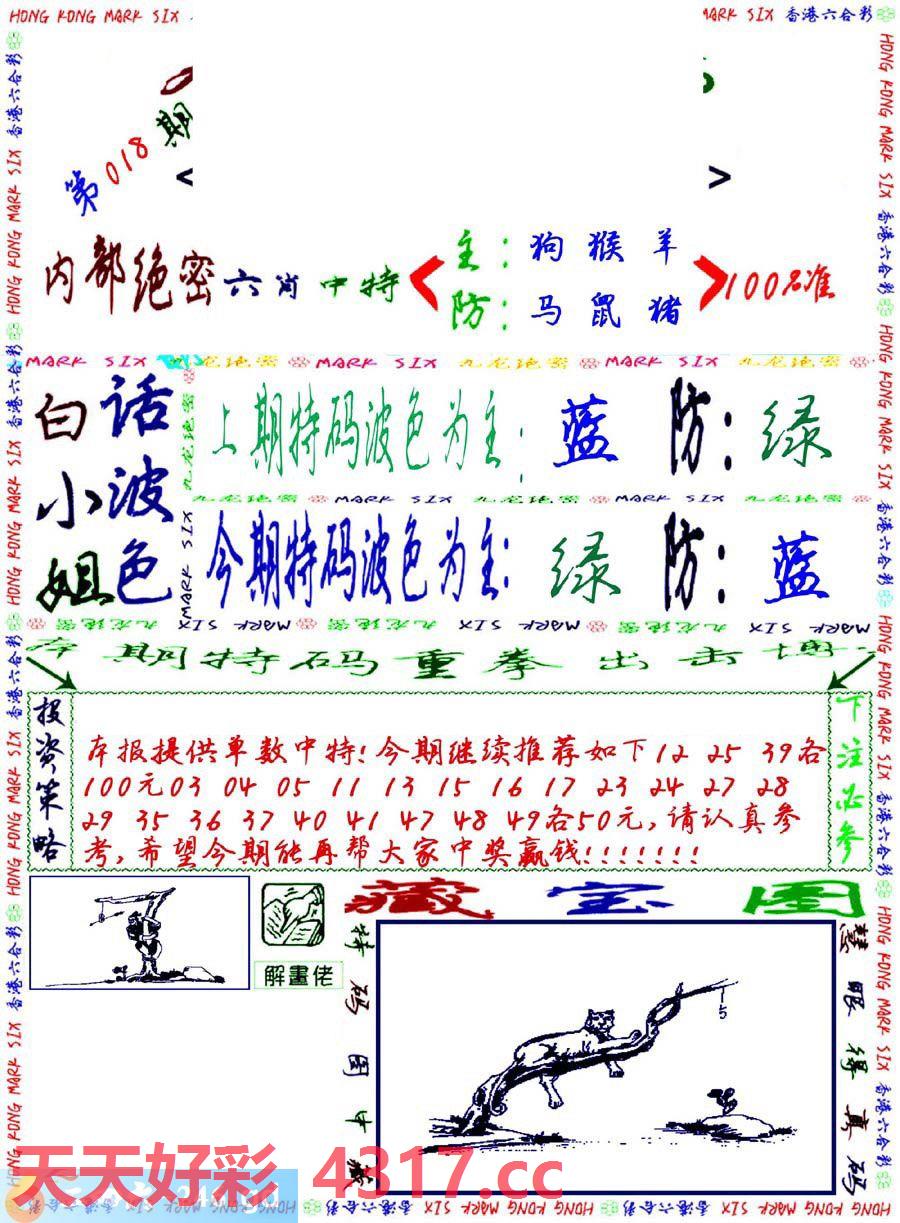 HONG KONG MARK SIX
MARK SIX 香港六合彩
第018期
< >
内部绝密六肖中特
主：狗猴羊
防：马鼠猪
100名准
MARK SIX 九龙绝密 MARK SIX 九龙绝密 MARK SIX 九龙绝密
白小姐
话波色
上期特码波色为主：蓝 防：绿
九龙绝密 MARK SIX 九龙绝密 MARK SIX 九龙绝密
今期特码波色为主：绿 防：蓝
九龙绝密 MARK SIX 九龙绝密 MARK SIX 九龙绝密 MARK SIX
期特码重拳出击
投资策略
本报提供单数中特!今期继续推荐如下12 25 39各
100元03 04 05 11 13 15 16 17 23 24 27 28
29 35 36 37 40 41 47 48 49各50元,请认真参
考,希望今期能再帮大家中奖赢钱!!!!!!!
下注必参
解畫佬
藏宝图
特码图中藏
慧眼得真码
5
天天好彩 4317.cc
HONG KONG MARK SIX 香港六合彩